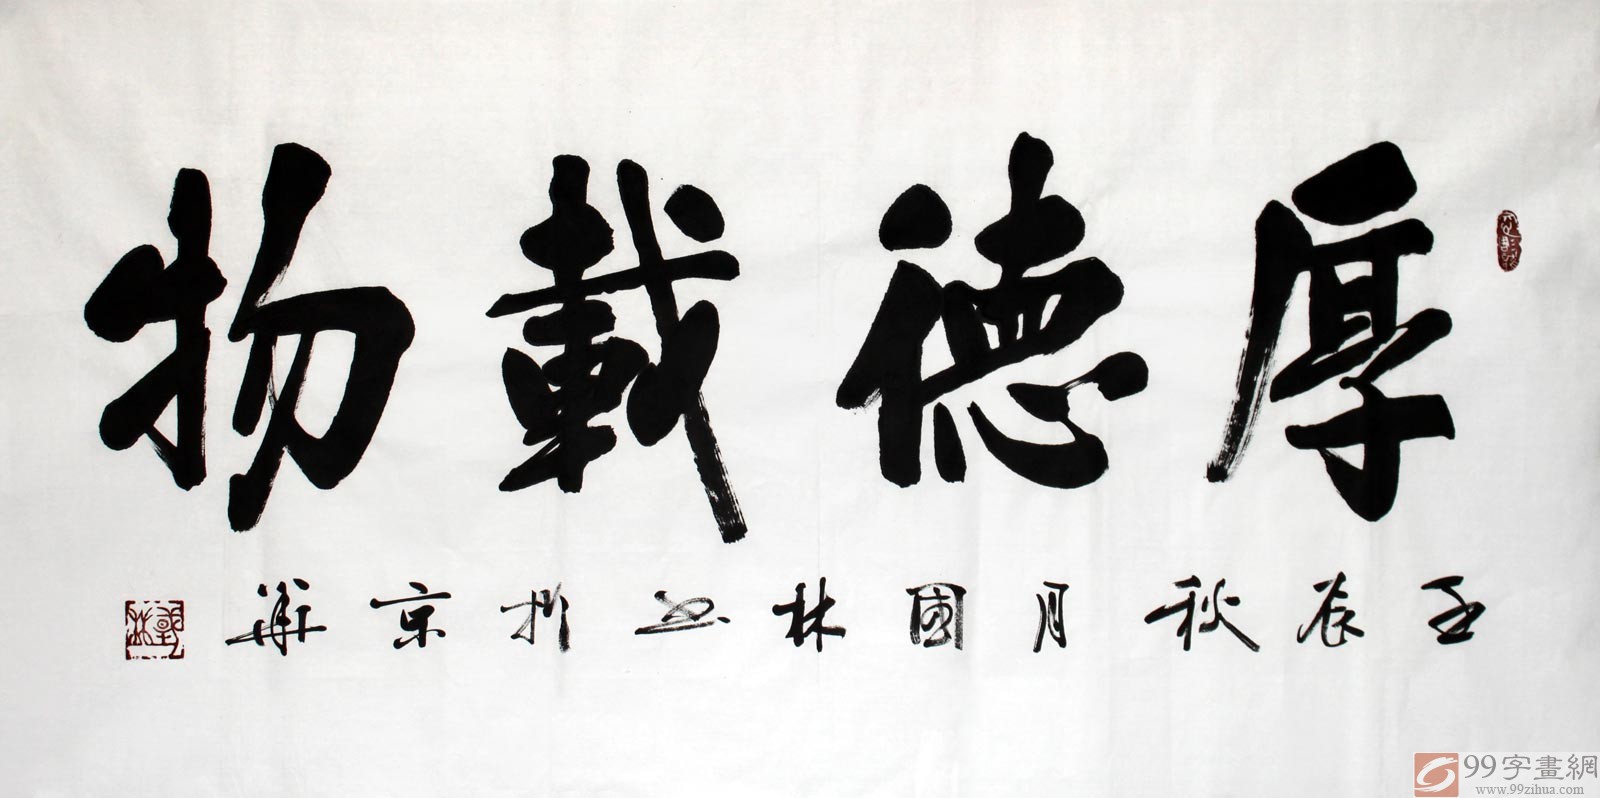 厚德載物
壬辰秋月國林書於京華
99字畫網
www.99zihua.com